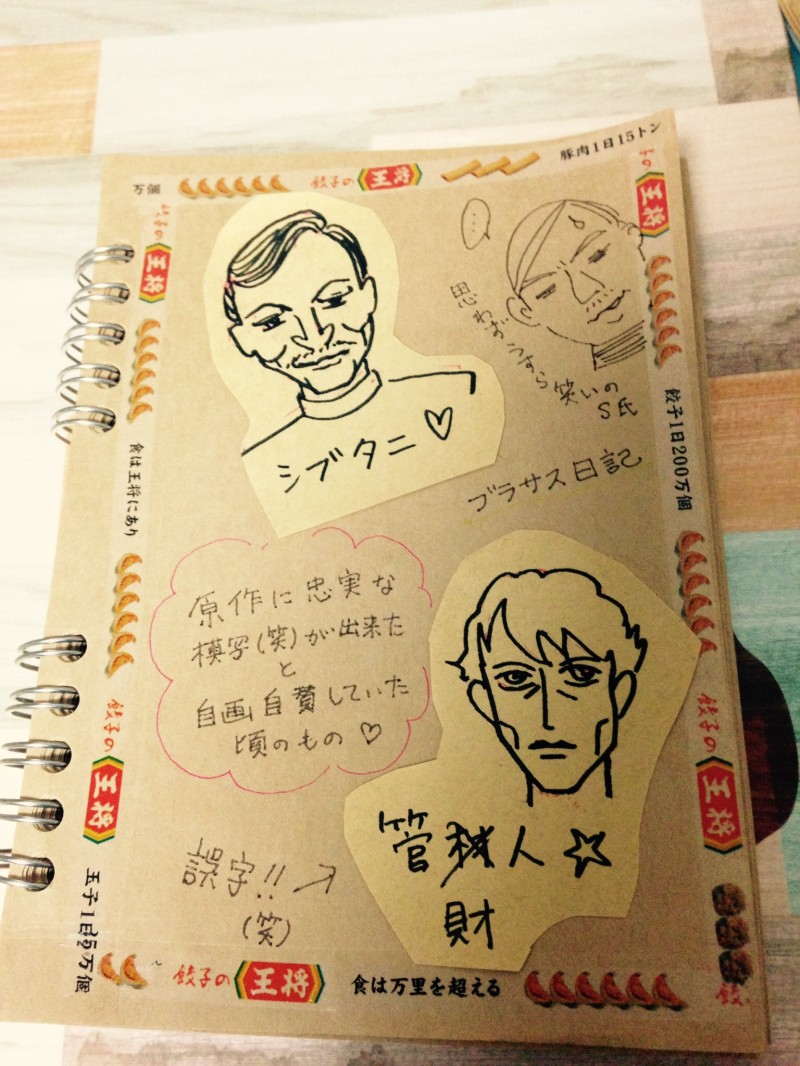 万個
餃子の
王将
豚肉1日15トン
餃子の
王将
食は王将にあり
餃子の
王将
玉子1日5万個
の
王将
餃子1日200万個
餃子の
王将
餃
餃子の
王将
食は万里を超える
シブタニ♡
...
思わずうすら笑いの
S氏
ブラサス日記
原作に忠実な
模写(笑)が出来た
と
自画自賛していた
頃のもの♡
管 人☆
財
誤字!!→
(笑)